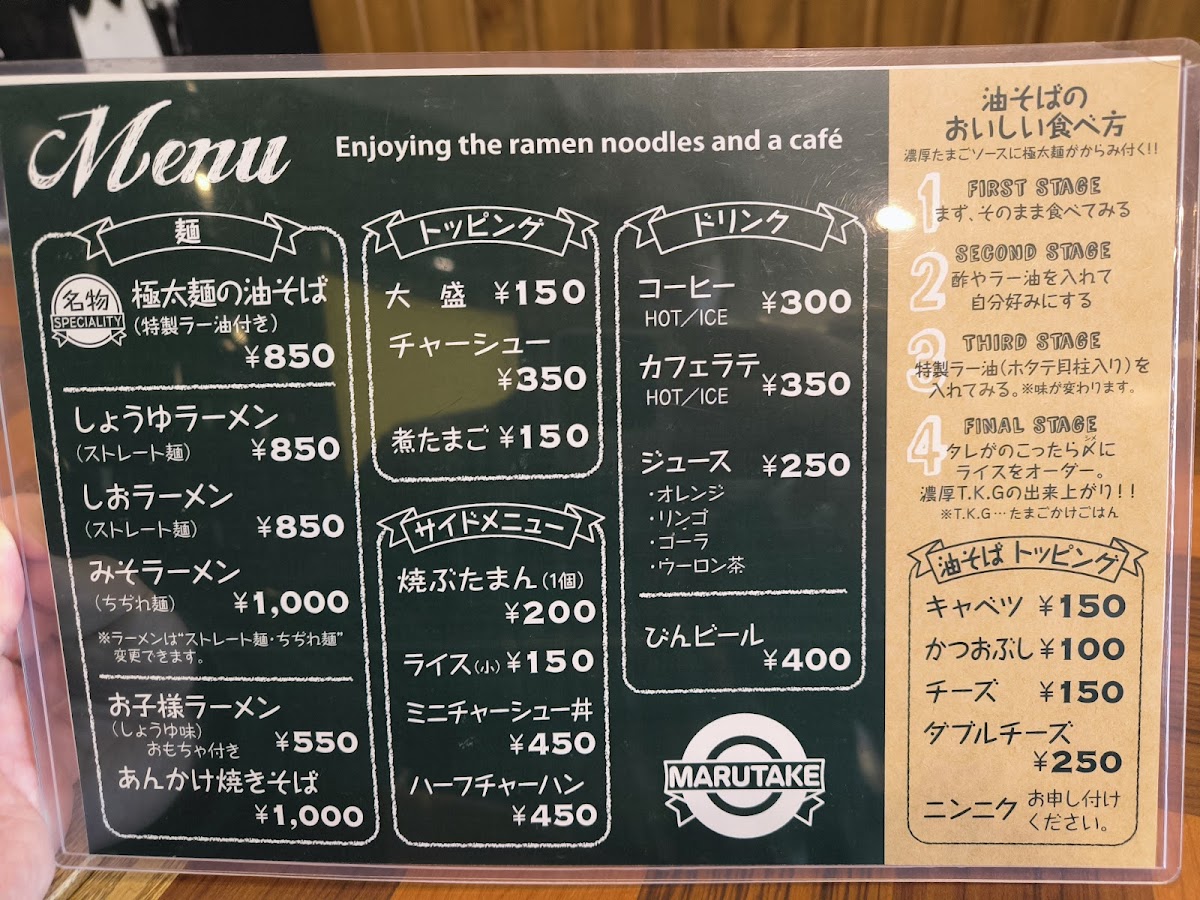 Menu
Enjoying the ramen noodles and a café
麺
名物
SPECIALITY
極太麺の油そば
(特製ラー油付き)
¥850
しょうゆラーメン
(ストレート麺)
¥850
しおラーメン
(ストレート麺)
¥850
みそラーメン
(ちぢれ麺)
¥1,000
※ラーメンは"ストレート麺・ちぢれ麺"
変更できます。
お子様ラーメン
(しょうゆ味)
おもちゃ付き
¥550
あんかけ焼きそば
¥1,000
トッピング
大 盛 ¥150
チャーシュー
¥350
煮たまご ¥150
サイドメニュー
焼ぶたまん(1個)
¥200
ライス(小) ¥150
ミニチャーシュー丼
¥450
ハーフチャーハン
¥450
ドリンク
コーヒー
HOT/ICE
¥300
カフェラテ
HOT/ICE
¥350
ジュース ¥250
・オレンジ
・リンゴ
・コーラ
・ウーロン茶
びんビール
¥400
MARUTAKE
油そばの
おいしい食べ方
濃厚たまごソースに極太麺がからみ付く!!
1 FIRST STAGE
まず、そのまま食べてみる
2 SECOND STAGE
酢やラー油を入れて
自分好みにする
3 THIRD STAGE
特製ラー油(ホタテ貝柱入り)を
入れてみる。※味が変わります。
4 FINAL STAGE
タレがのこったら〆に
ライスをオーダー。
濃厚T.K.Gの出来上がり!!
※T.K.G…たまごかけごはん
油そば トッピング
キャベツ ¥150
かつおぶし ¥100
チーズ ¥150
ダブルチーズ
¥250
ニンニク お申し付け
ください。